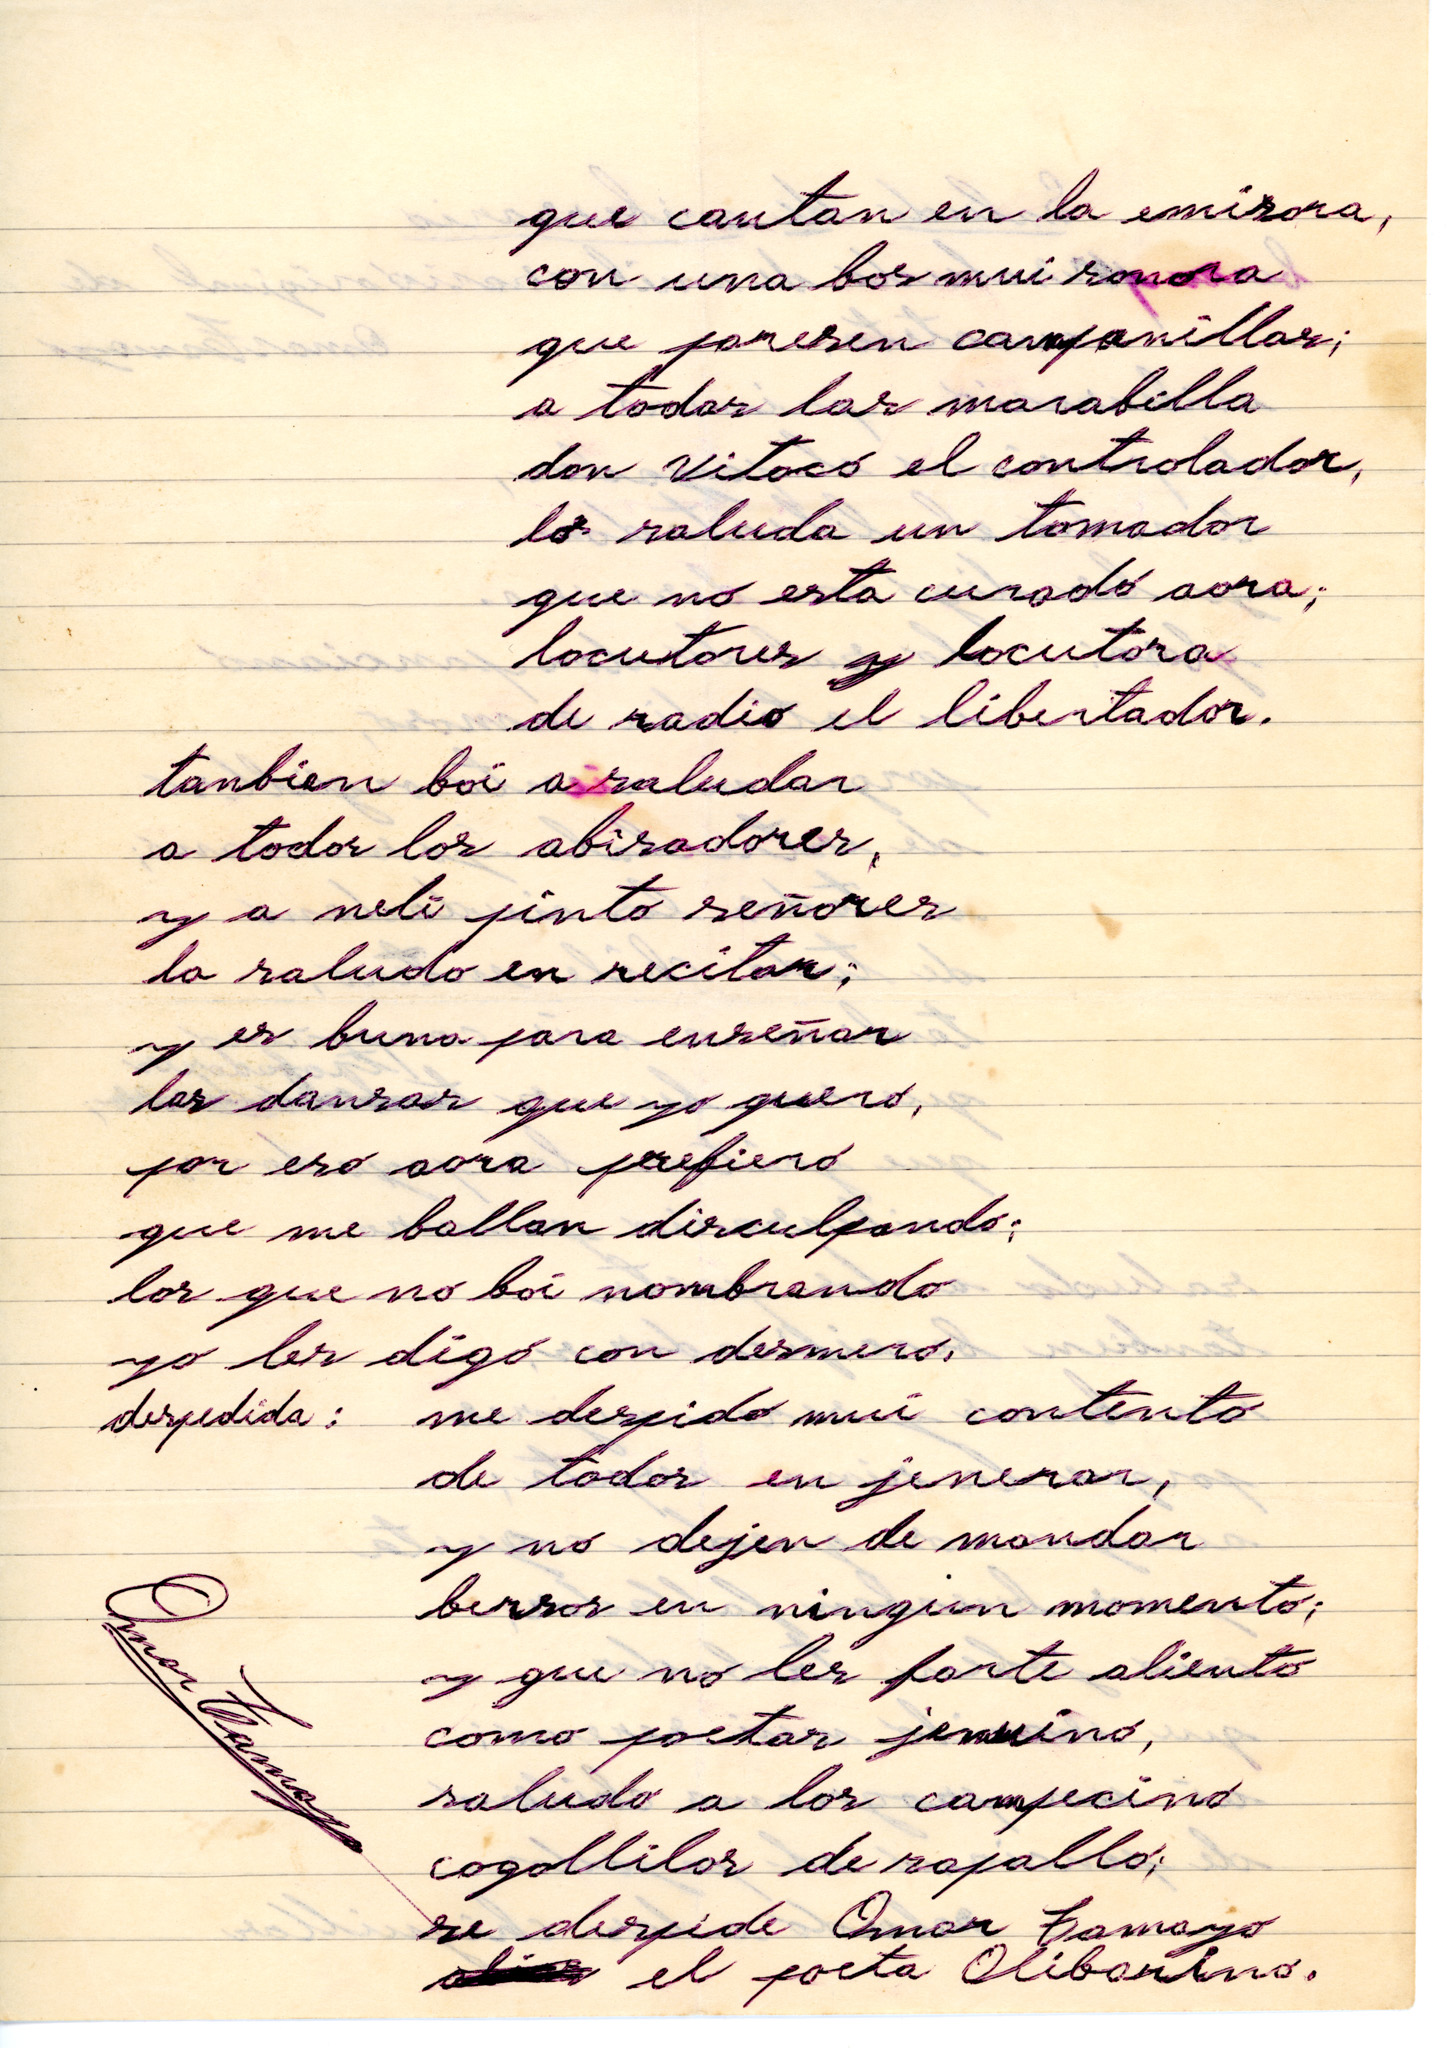 que cantan en la emisora,
con una bos mui sonora
que paresen campanillas;
a todas las marabilla
don Vitoco el controlador,
los saluda un tomador
que no esta curado aora;
locutores y locutora
de radio el libertador.
tanbien boi a saludar
a todos los abisadores,
y a neli pinto señores
la saludo en recitar;
y es buna para enseñar
las dansas que yo quero,
por eso aora prefiero
que me ballan disculpando;
los que no boi nombrando
yo les digo con desmero.
despedida: me despido mui contento
de todos en jenerar,
y no dejen de mandar
bersos en ningun momento;
y que no les farte aliento
como poetas jenuino,
saludo a los campecino
cogollilos de rapallo;
se despide Omar Tamayo
el poeta Olibarino.
Omar Tamayo